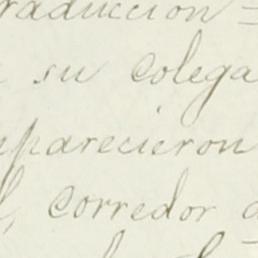 raducción =
su colega
eparecieron
l, corredor d